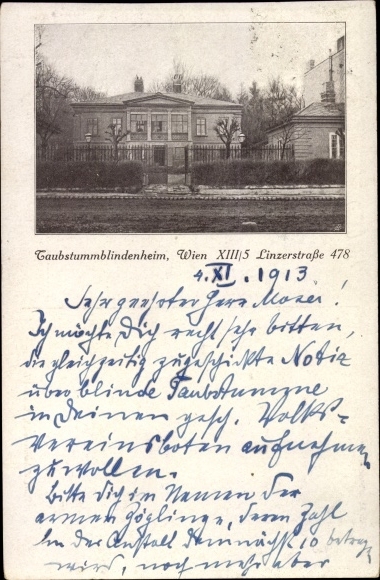 Taubstummblindenheim, Wien XIII/5 Linzerstraße 478
4. XI. 1913
Sehr geehrter Herr Moser!
Ich möchte Dich recht sehr bitten,
die gleichzeitig zugeschickte Notiz
über blinde Taubstumme
in Deinen gesch. Volks-
vereinsboten aufnehmen
zu wollen.
Bitte Dich im Namen der
armen Zöglinge, deren Zahl
in der Anstalt demnächst 10 betragen
wird, noch mehr aber